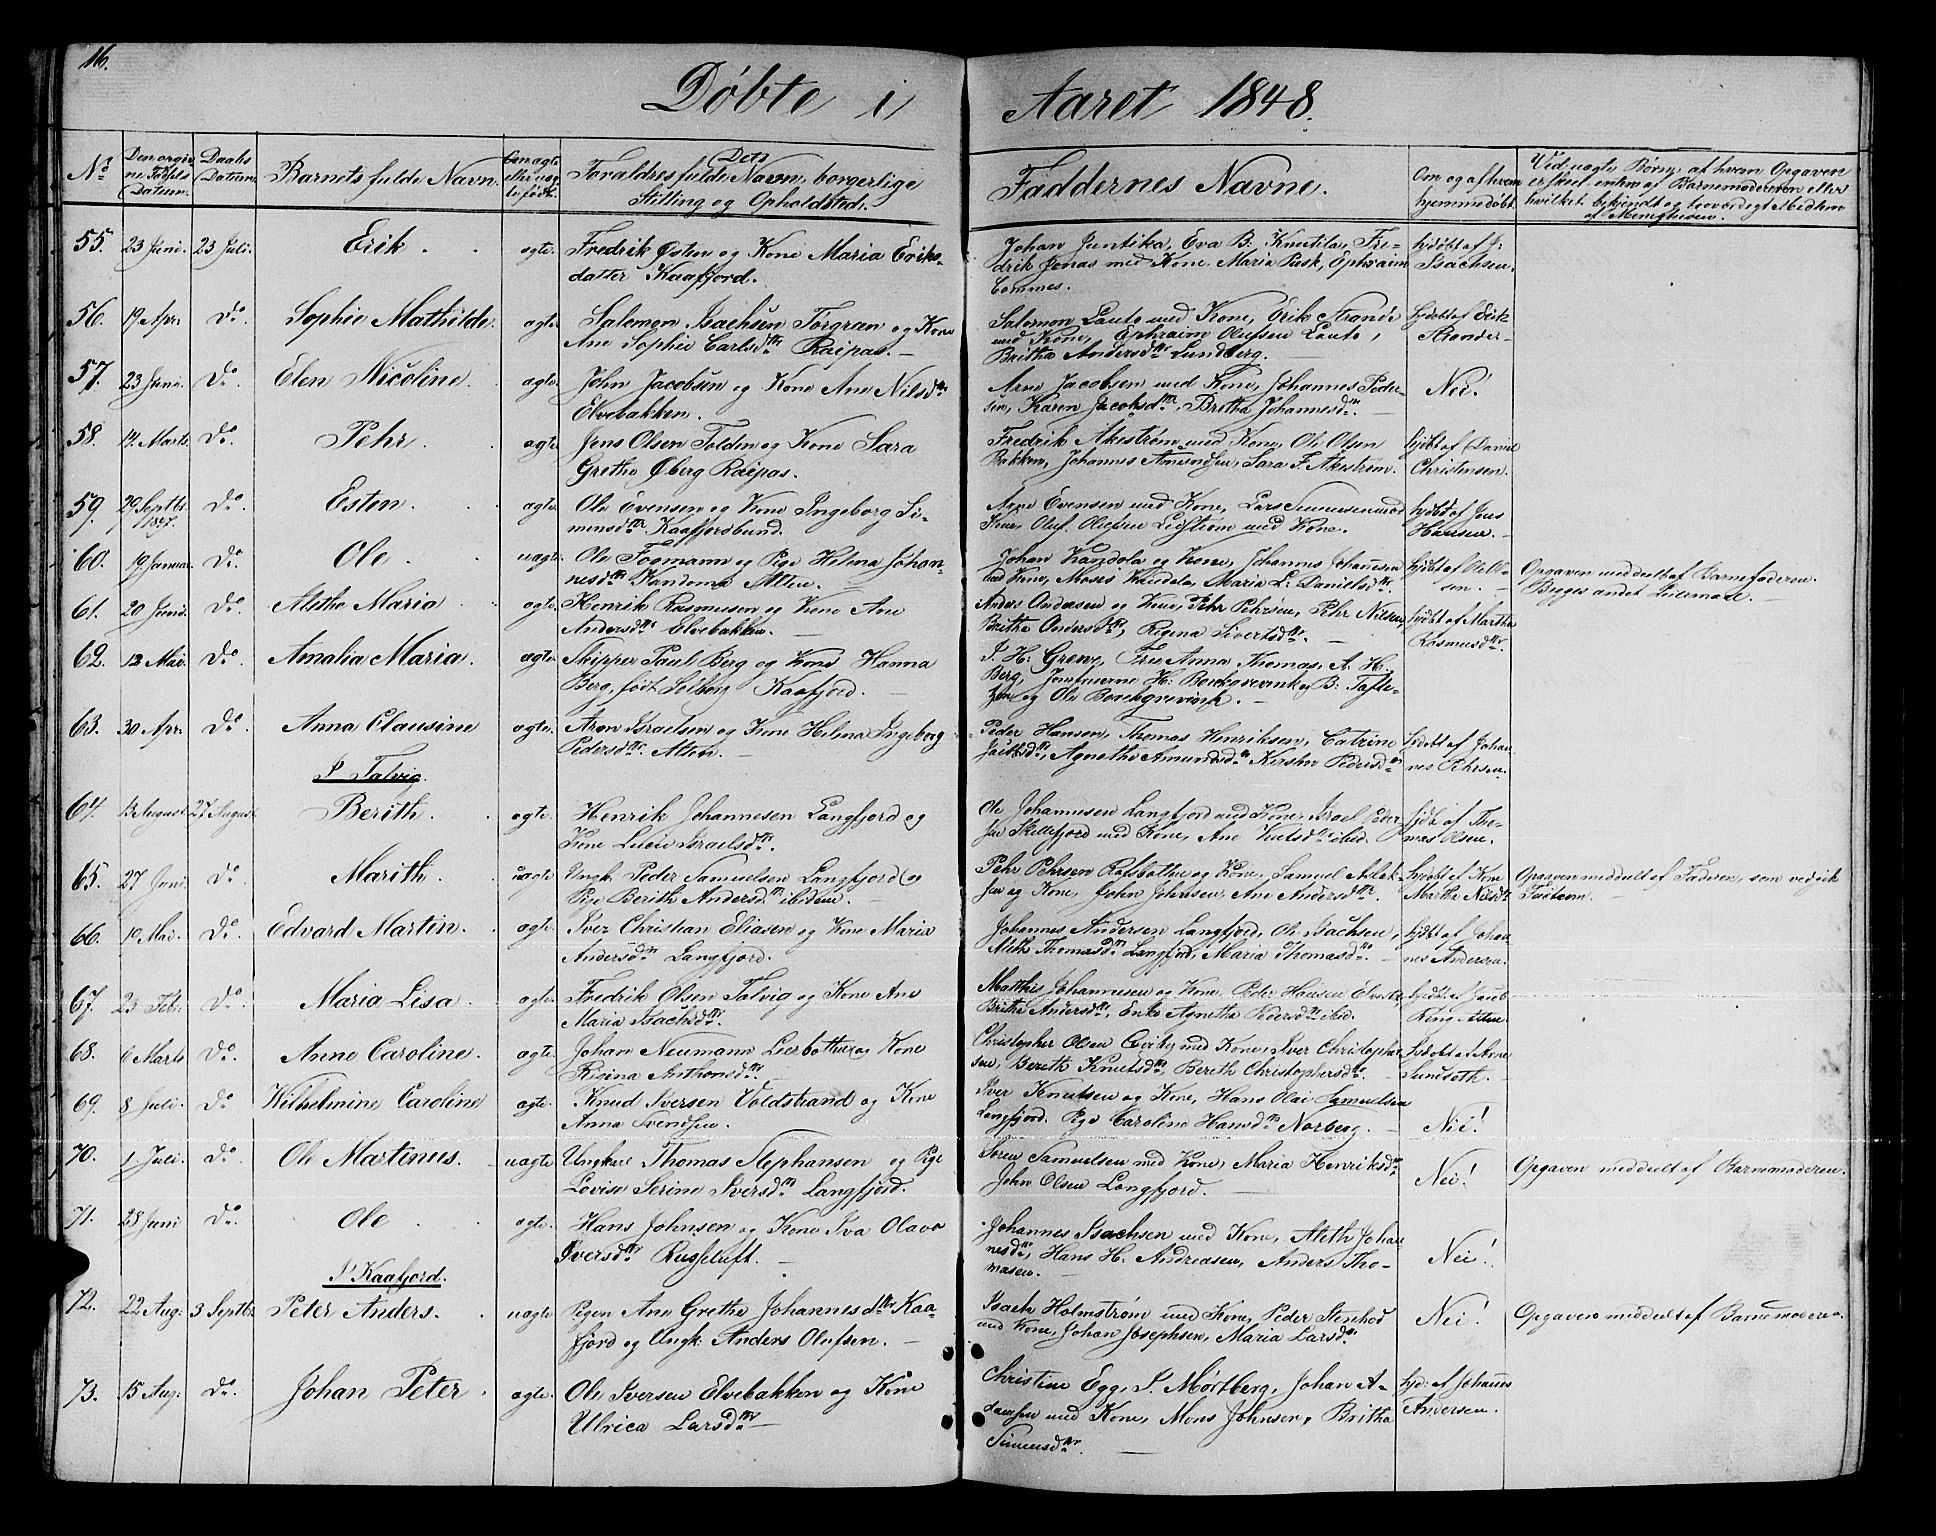 16.
Döbte i Aaret 1848.
No Den orgiv- ne Fødsels Datum. Daabs Datum. Barnets fulde Navn. Om ægte eller uæg- te født. Dets Forældres fulde Navn, borgerlige Stilling og Opholdsted. Faddernes Navne. Om og af hvem hjemmedøbt. Ved uægte Børn, af hvem Opgaven er skeet, enten af Barnemoderen eller hvilket bekjendt og troværdigt Medlem af Menigheden.
55. 23 Juni. 23 Juli. Erik. ægte. Fredrik Østen og Kone Maria Eriks- Johan Juntika, Eva B: Knutila, Fre- hjdøbt af J:
datter Kaafjord. drik Jonas med Kone, Maria Pusk, Ephraim Isachsen.
Commes.
56. 19 Apr: Do. Sophie Mathilde. ægte. Salomon Isachsen Törgran og Kone Salomon Lauto med Kone, Erik Strande hjdøbt af Erik
Ane Sophie Carlsdtr Raipas. — med Kone, Ephraim Olufsen Lauto, Strander —
Britha Andersdtr Lundberg.
57. 23 Juni. Do. Elen Nicoline. ægte. John Jacobsen og Kone Ane Nilsdtr Arne Jacobsen med Kone, Johannes Peder- Nei!
Elvebakken. sen, Karen Jacobsdtr, Britha Johannesdtr. —
58. 14 Marts. Do. Pehr. ægte. Jens Olsen Foldin og Kone Sara Fredrik Akeström med Kone, Ole Olsen hjdøbt af Daniel
Grethe Øberg Raipas. Bakken, Johannes Amundsen, Sara F. Akeström. Christensen.
59. 29 Septbr. 1847. Do. Esten. ægte. Ole Evensen og Kone Ingeborg Si- Arne Evensen med Kone, Lars Simensen med hjdøbt af Jens
mensdtr Kaafjordbund. Kone, Oluf Olufsen Lidström med Kone. Hansen. —
60. 19 Januar. Do. Ole. uægte. Ole Fogmann og Pige Helena Johan- Johan Kandola og Kone, Johannes Johannesen hjdøbt af Ole Ol- Opgaven meddelt af Barnefaderen.
nesdtr Kandoma Alten. — med Kone, Moses Kandola, Maria L. Danielsdtr. sen. — Begges andet Leiermaal. —
61. 20 Juni. Do. Alethe Maria. ægte. Henrik Rasmusen og Kone Ane Anders Andersen og Kone, Pehr Pehrsen, Pehr Nilsen, hjdøbt af Martha
Andersdtr Elvebakken. — Britha Andersdtr, Regina Sivertsdtr. — Rasmusdtr.
62. 12 Mai. Do. Amalia Maria. ægte. Skipper Paul Berg og Kone Hanna J. H: Grewe, Frue Anna Thomas, A. H.
Berg, født Solberg Kaafjord. — Berg, Jomfruerne H: Borchgrevink, B: Tafte-
zon og Ole Borchgrevink. —
63. 30 Apr: Do. Anna Clausine ægte. Aron Israelsen og Kone Helena Ingeborg Peder Hansen, Thomas Henriksen, Catrine hjdøbt af Johan-
Pedersdtr. Alten. — Agnethe Amundsdtr Kirsten Pedersdtr nes Pehrsen.
I Talvig.
64. 13 August. 27 August. Berith. ægte. Henrik Johannesen Langfjord og Ole Johannesen Langfjord med Kone, Israel Peder- hjdøbt af Tho-
Kone Lucie Israelsdtr. sen Skillefjord med Kone, Ane Knutsdtr ibid. mas Olsen.
65. 27 Juni. Do. Marith. uægte. Ungk. Peder Samuelsen Langfjord og Pehr Pehrsen Rafsbotten og Kone, Samuel Aslak- hjdøbt af Kone Opgaven meddelt af Faderen, som vedgik
Pige Berith Andersdtr ibidem. — sen og Kone, John Johnsen, Ane Andersdtr. Martha Nilsdtr —
66. 10 Mai. Do. Edvard Martin. ægte. Iver Christian Eliasen og Kone Maria Johannes Andersen Langfjord, Ole Isachsen, hjdøbt af Johan-
Andersdtr Langfjord. Aleth Thomasdtr Langfjord, Maria Thomasdtr. — nes Andersen
67. 23 Febr: Do. Maria Lisa. ægte. Fredrik Olsen Talvig og Kone Ane Matthis Johannesen og Kone, Peder Hansen hjdøbt af Jacob
Maria Isachsdtr. Britha Andersdtr, Enke Agnetha Pedersdtr ibid. Alten
68. 6 Marts Do. Anne Caroline. ægte. Johan Neumann Leerbotten og Kone Christopher Olsen med Kone, Iver Christopher- hjdøbt af Arne
Risina Anthonsdtr. — sen, Bereth Knutsdtr, Bereth Christophersdtr. — Sundseth. —
69. 8 Juli. Do. Wilhelmine Caroline ægte. Knud Iversen Voldstrand og Kone Iver Knutsen og Kone, Hans Olai Samuelsen
Anna Svendsen. Langfjord. Pige Caroline Hansdtr Norberg. — Nei!
70. 1 Juli. Do. Ole Martinus. uægte Ungkarl Thomas Stephansen og Pige Sören Samuelsen med Kone, Maria Henriksdtr Nei! Opgaven meddelt af Barnemoderen.
Lovise Serine Iversdtr Langfjord. John Olsen Langfjord. —
71. 28 Juni Do. Ole ægte. Hans Johnsen og Kone Iva Olava Johannes Isachsen med Kone, Aleth Johan-
Iversdtr Russeluft. — nesdtr, Hans H. Andreasen, Anders Tho- Nei!
masen. —
I Kaafjord.
72. 22 Aug: 3 Septbr. Peter Anders. uægte Pigen Ane Grethe Johannesdtr Kaa- Isach Holmström med Kone, Peder Stenhod Nei! Opgaven meddelt af Barnemoderen.
fjord og Ungk: Anders Olufsen. — med Kone, Johan Josephsen, Maria Larsdtr.
73. 15 Aug: Do. Johan Peter ægte. Ole Iversen Elvebakken og Kone Christine Egg, S. Mörtberg, Johan A- hjd: af Johannes
Ulrica Larsdtr — damsen med Kone, Mons Johnsen, Britha Andersen.
Simensdtr. —